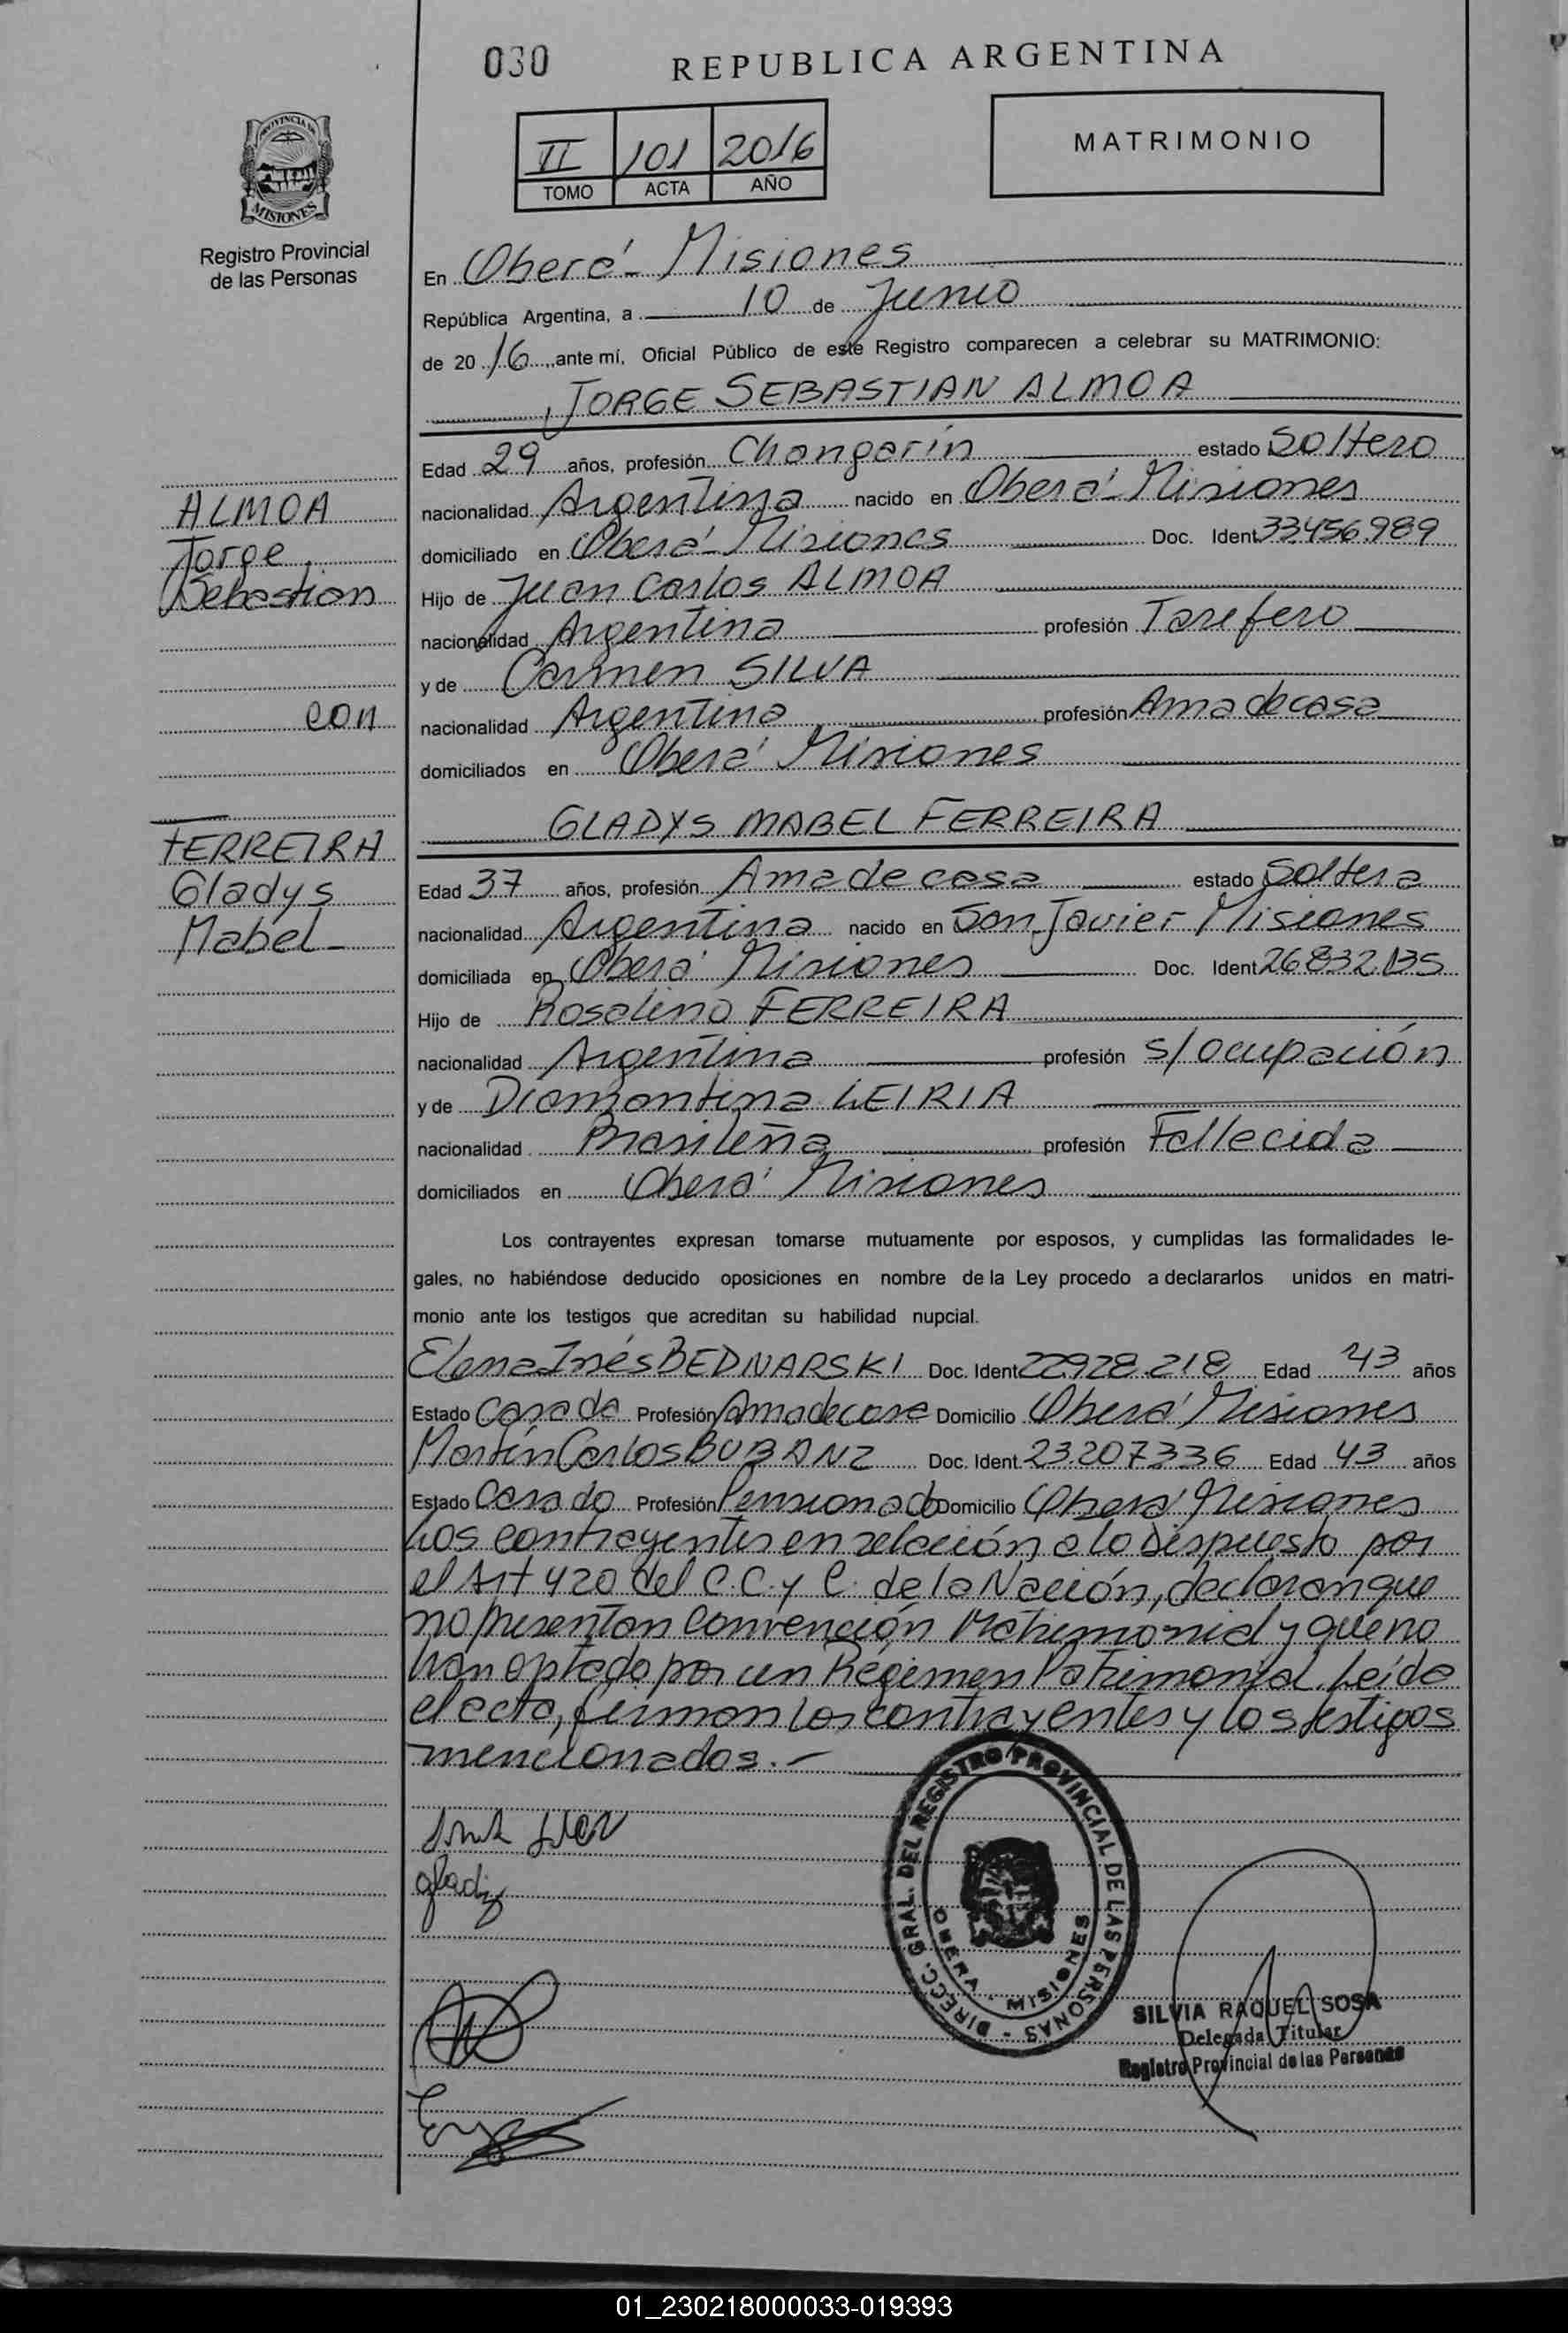 030
REPUBLICA ARGENTINA
PROVINCIA DE
MISIONES
Registro Provincial
de las Personas
II 101 2016
TOMO ACTA AÑO
MATRIMONIO
En Oberá - Misiones
República Argentina, a 10 de Junio
de 2016, ante mí, Oficial Público de este Registro comparecen a celebrar su MATRIMONIO:
JORGE SEBASTIAN ALMOA
Edad 29 años, profesión Changarín estado Soltero
ALMOA
nacionalidad Argentina nacido en Oberá - Misiones
Jorge
domiciliado en Oberá - Misiones Doc. Ident 33.456.989
Sebastian
Hijo de Juan Carlos ALMOA
nacionalidad Argentina profesión Tarefero
y de Carmen SILVA
con
nacionalidad Argentina profesión Ama de casa
domiciliados en Oberá Misiones
GLADYS MABEL FERREIRA
FERREIRA
Edad 37 años, profesión Ama de casa estado Soltera
Gladys
nacionalidad Argentina nacido en San Javier - Misiones
Mabel
domiciliada en Oberá Misiones Doc. Ident 26.832.135
Hijo de Rosalino FERREIRA
nacionalidad Argentina profesión s/ ocupación
y de Diamantina LEIRIA
nacionalidad Brasileña profesión Fallecida
domiciliados en Oberá Misiones
Los contrayentes expresan tomarse mutuamente por esposos, y cumplidas las formalidades le-
gales, no habiéndose deducido oposiciones en nombre de la Ley procedo a declararlos unidos en matri-
monio ante los testigos que acreditan su habilidad nupcial.
Elena Inés BEDNARSKI Doc. Ident 22.928.218 Edad 43 años
Estado Casada Profesión Ama de casa Domicilio Oberá Misiones
Martín Carlos BUBANZ Doc. Ident. 23.207.336 Edad 43 años
Estado Casado Profesión Pensionado Domicilio Oberá Misiones
Los contrayentes en relación a lo dispuesto por
el Art 420 del C.C. y C. de la Nación, declaran que
no presentan Convención Matrimonial y que no
han optado por un Régimen Patrimonial. Leída
el acta, firman los contrayentes y los testigos
mencionados.-
DIRECC. GRAL. DEL REGISTRO PROVINCIAL DE LAS PERSONAS -
OBERA - MISIONES
SILVIA RAQUEL SOSA
Delegada Titular
Registro Provincial de las Personas
01_230218000033-019393